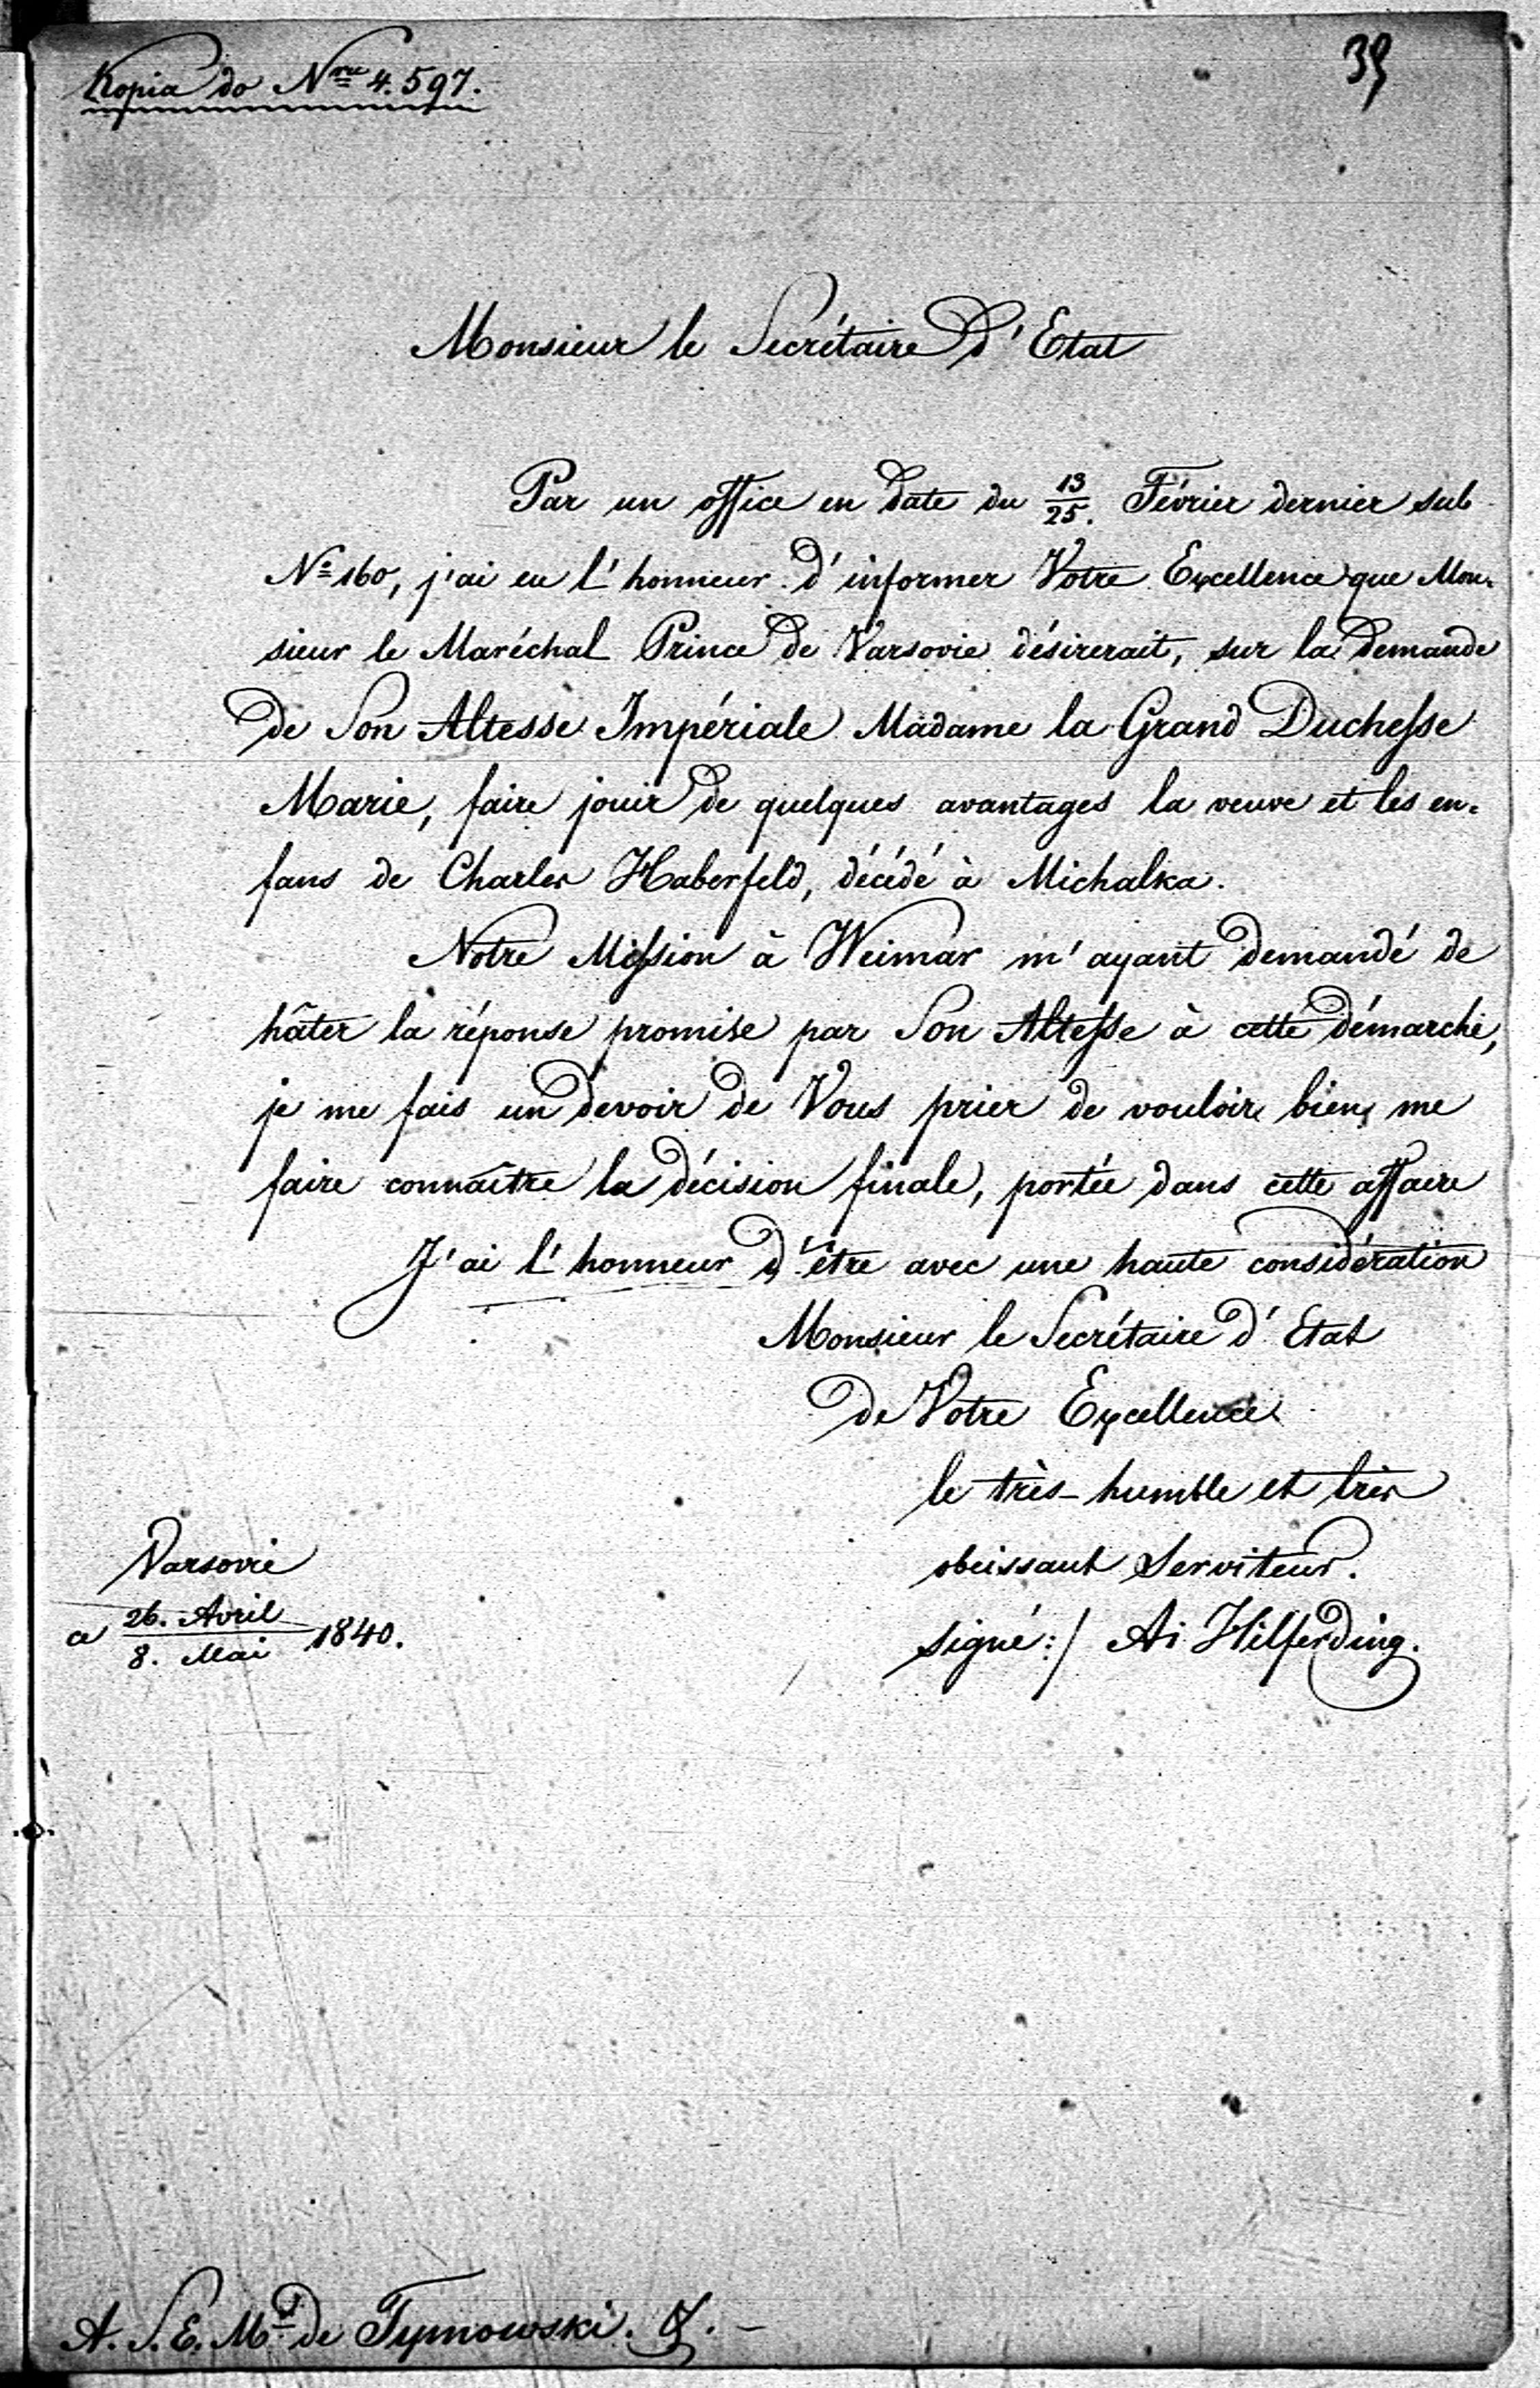 Kopia do Nru 4.597.
39
Monsieur le Secrétaire d'Etat
Par un office en date du 13/25. Février dernier sub
No 160, j'ai eu l'honneur d'informer Votre Excellence que Mon-
sieur le Maréchal Prince de Varsovie désirerait, sur la demande
de Son Altesse Impériale Madame la Grand Duchesse
Marie, faire jouir de quelques avantages la veuve et les en-
fans de Charles Haberfeld, décédé à Michalka.
Notre Mission à Weimar m'ayant demandé de
hâter la réponse promise par Son Altesse à cette démarche,
je me fais un devoir de Vous prier de vouloir bien me
faire connaître la décision finale, portée dans cette affaire
J'ai l'honneur d'être avec une haute considération
Monsieur le Secrétaire d'Etat
de Votre Excellence
le très-humble et très
obeissant Serviteur.
signé:/ Hilferding.
Varsovie
ce 26. Avril / 8. Mai 1840.
A. S. E. Mr de Tymowski.